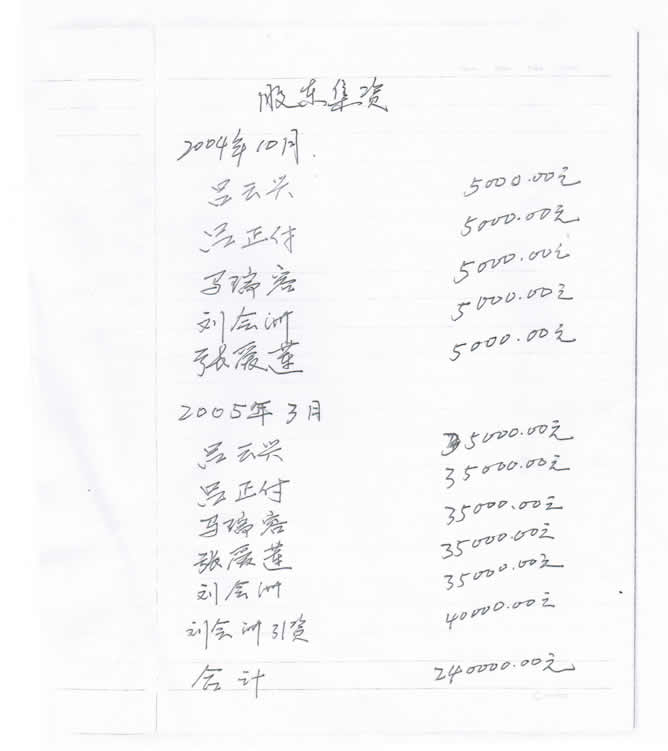 股东集资
2004年10月.
吕云兴 5000.00元
吕正付 5000.00元
马瑞容 5000.00元
刘会洲 5000.00元
张爱莲 5000.00元
2005年3月
吕云兴 35000.00元
吕正付 35000.00元
马瑞容 35000.00元
张爱莲 35000.00元
刘会洲 35000.00元
刘会洲引资 40000.00元
合计 240000.00元